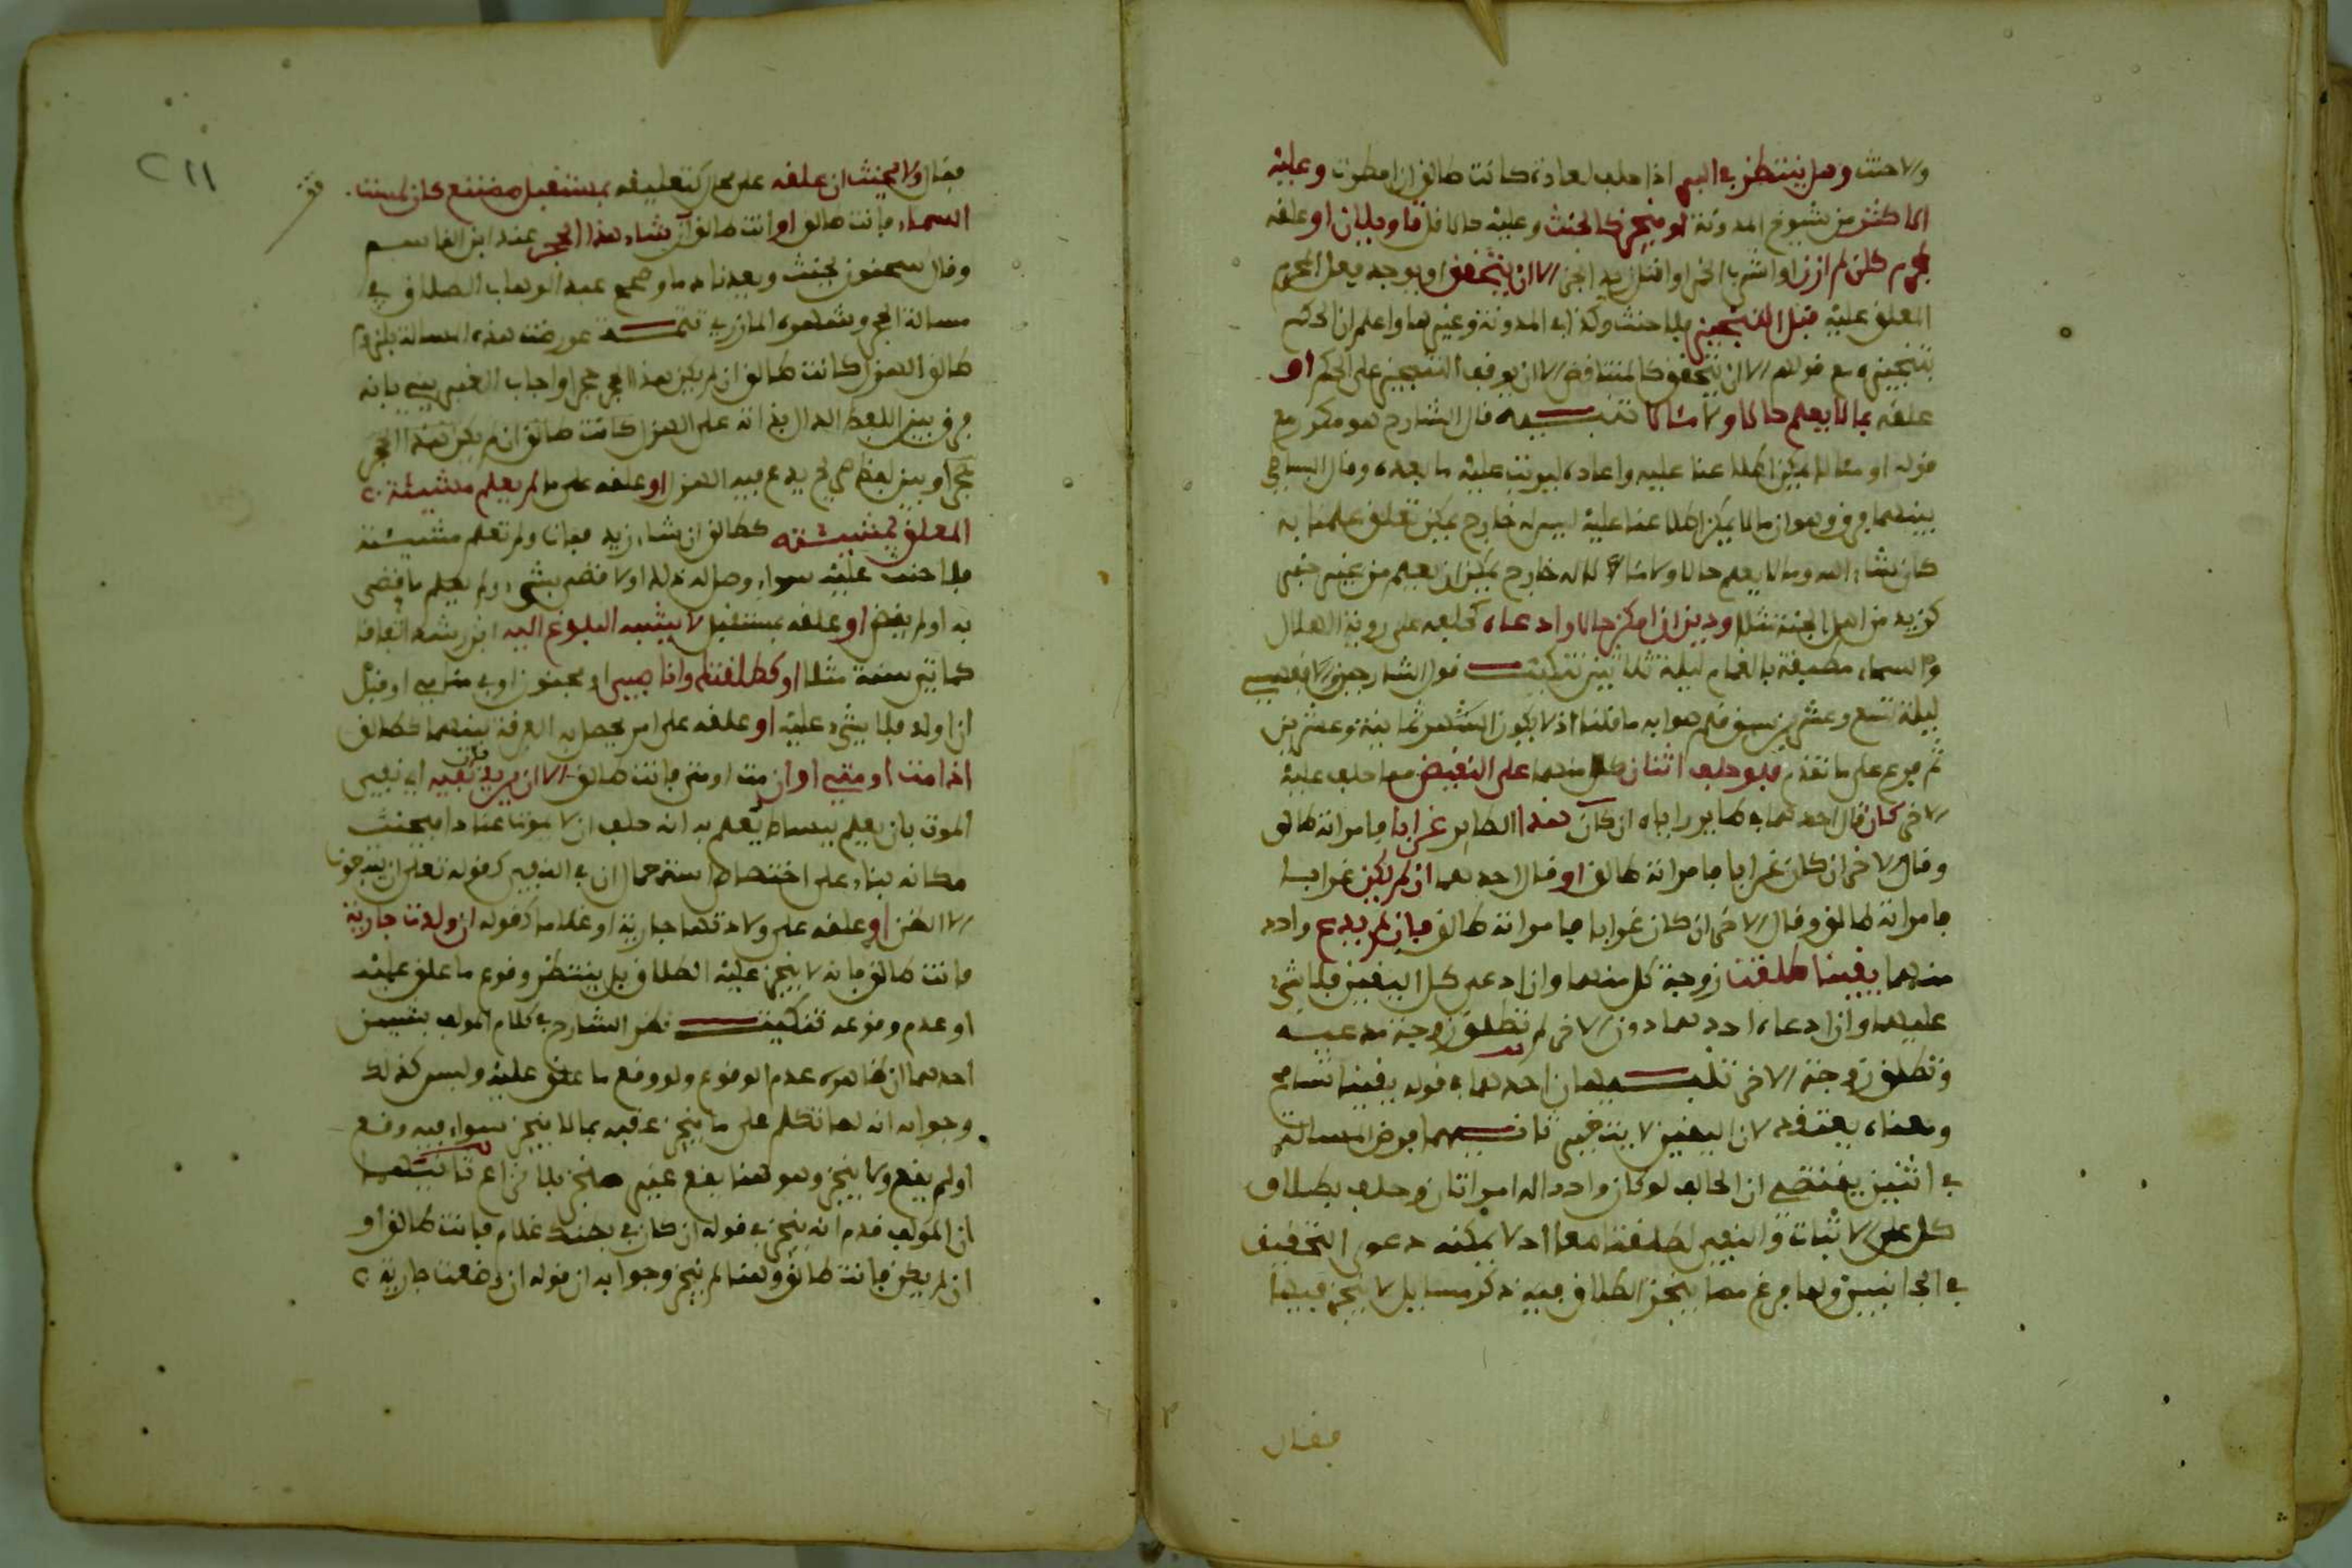 ولا حنث وهل ينتظر في البر اذا حلف لعادة كانت طالق ان امطرت وعليه
الاكثر من شيوخ المدونة او ينجز كالحنث وعليه حالا قال تاويلان او علقه
بمحرم كان لم ازن او اشرب الخمر او اقتل زيد الخ الا ان يتحقق او يوجد فعل المحرم
المعلق عليه قبل التنجيز فلا حنث وكذا في المدونة وغيرها واعلم ان الحكم
بتنجيزه مع قولهم الا ان يتحقق كالمتناقض الا ان يوقف التنجيز على الحكم او
علقه بما لا يعلم حالا ولا مئالا تنبيه قال الشارح هو مكرر مع
قوله او مما لا يمكن اطلاعنا عليه واعاده ليرتب عليه ما بعده وقال البساطي
بينهما فرق وهو ان ما لا يمكن اطلاعنا عليه ليس له خارج يمكن تعلق علمنا به
كان شاء الله وما لا يعلم حالا ولا مئالا له خارج يمكن ان يعلم من غير خفى
كزيد من اهل الجنة مثلا ودين ان امكن حالا وادعاه كحلفه على روية الهلال
والسماء مطبقة بالغمام ليلة ثلاثين تنكيت قول الشارحين الاقفهسي
ليلة تسع وعشرين سبق قلم صوابه ما قلنا اذ لا يكون الشهر ثمانية وعشرين
ثم فرع على ما تقدم فلو حلف اثنان كل منهما على النقيض مما حلف عليه
الاخر كان قال احدهما في طاير راياه ان كان هذا الطاير غرابا فامراته طالق
وقال الاخر ان كان غرابا فامراته طالق او قال احدهما ان لم يكن غرابا
فامراته طالق وقال الاخر ان كان غرابا فامراته طالق فان لم يدع واحد
منهما يقينا طلقت زوجة كل منهما وان ادعى كل اليقين فلا شيء
عليهما وان ادعاه احدهما دون الاخر لم تطلق زوجة مدعيه
وتطلق زوجة الاخر تنبيهان احدهما في قوله يقينا تسامح
ومعناه يعتقده لان اليقين لا يتخير ثانيهما فرض المسالة
في اثنين يقتضي ان الحالف لو كان واحد اله امراتان وحلف بطلاق
كل على الاثبات والنفي لطلقتا معا اذ لا يمكنه دعوى التحقيق
في الجانبين ولما فرغ مما ينجز الطلاق فيه ذكر مسايل لا ينجز فيها
فقال
٢١١
فقال ولا يحنث ان علقه على محال كتعليقه بمستقبل ممتنع كان لمست
السماء فانت طالق او انت طالق ان شاء هذا الحجر عند ابن القاسم
وقال سحنون يحنث وبعدنا دما وصحح عبد الوهاب الطلاق في
مسالة الحجر وشهره المازري تتمة عورضت هذه المسالة بلزوم
طالق الهزل كانت طالق ان لم يكن هذا الحجر حجرا واجاب الغبريني بانه
فرق بين اللفظ الدال بذاته على الهزل كانت طالق ان لم يكن هذا الحجر
حجرا وبين لفظ صريح يدعي فيه الهزل او علقه على ما لم يعلم مشيئة
المعلق بمشيئته كطالق ان شاء زيد فمات ولم تعلم مشيئته
فلا حنث عليه سواء وصل له ذلك او لا قضى بشيء ولم يعلم ما قضى
به او لم يقض او علقه بمستقبل لا يشبه البلوغ اليه ابن رشد اتفاقا
كمايتي سنة مثلا او كطلقتك وانا صبي او مجنون او في منامي او قبل
ان اولد فلا شيء عليه او علقه على امر يحصل به الفرقة بينهما كطالق
اذا مت او متي او ان مت او متى فانت طالق الا ان يريد نفيه اي نفي
الموت بان يعلم بيساط يعلم به انه حلف ان لا يموت عنادا فيحنث
مكانه بناء على اختصاص استعمال ان في النفي كقوله تعلى ان يتبعون
الا الظن او علقه على ولادتها جارية او غلاما كقوله ان ولدت جارية
فانت طالق فانه لا ينجز عليه الطلاق بل ينتظر وقوع ما علق عليه
او عدم وقوعه تنكيت نظر الشارح في كلام المولف بشيين
احدهما ان ظاهره عدم الوقوع ولو وقع ما علق عليه وليس كذلك
وجوابه انه لما تكلم على ما ينجز عقبه بما لا ينجز سواء فيه وقع
او لم يقع ولا ينجز وهو هنا يقع غير منجز بلا نزاع ثانيهما
ان المولف قدم انه ينجز في قوله ان كان في بطنك غلام فانت طالق او
ان لم يكن فانت طالق وهنا لم ينجز وجوابه ان قوله ان وضعت جارية